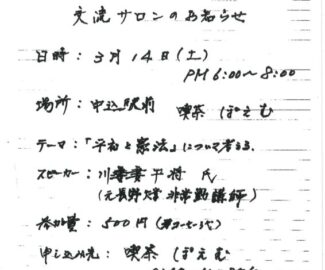 交流サロンのお知らせ
日時：3月14日(土)
PM 6:00〜8:00
場所： 駅前 喫茶 ぽえむ
テーマ：「平和と憲法」について考える
スピーカー： 川 平 氏
(元長野大学 非常勤講師)
参加費： 500円 (コーヒー代)
申し込み先： 喫茶 ぽえむ